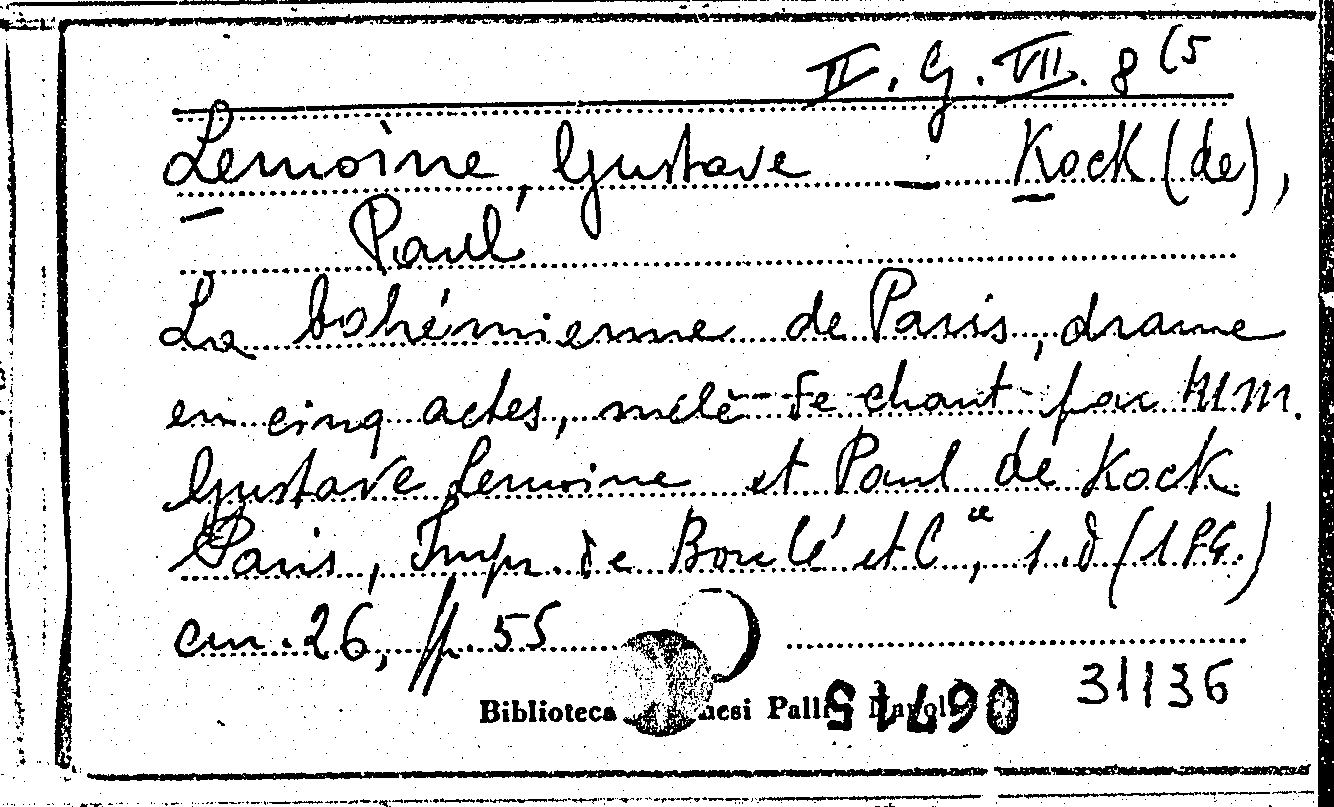 II. G. VII. 8 (5
Lemoine, Gustave - Kock (de),
Paul
La bohémienne de Paris, drame
en cinq actes, mêlé de chant par MM.
Gustave Lemoine et Paul de Kock
Paris, Impr. de Boulé et C.ie, s.d
cm. 26, pp. 55
31136
Biblioteca